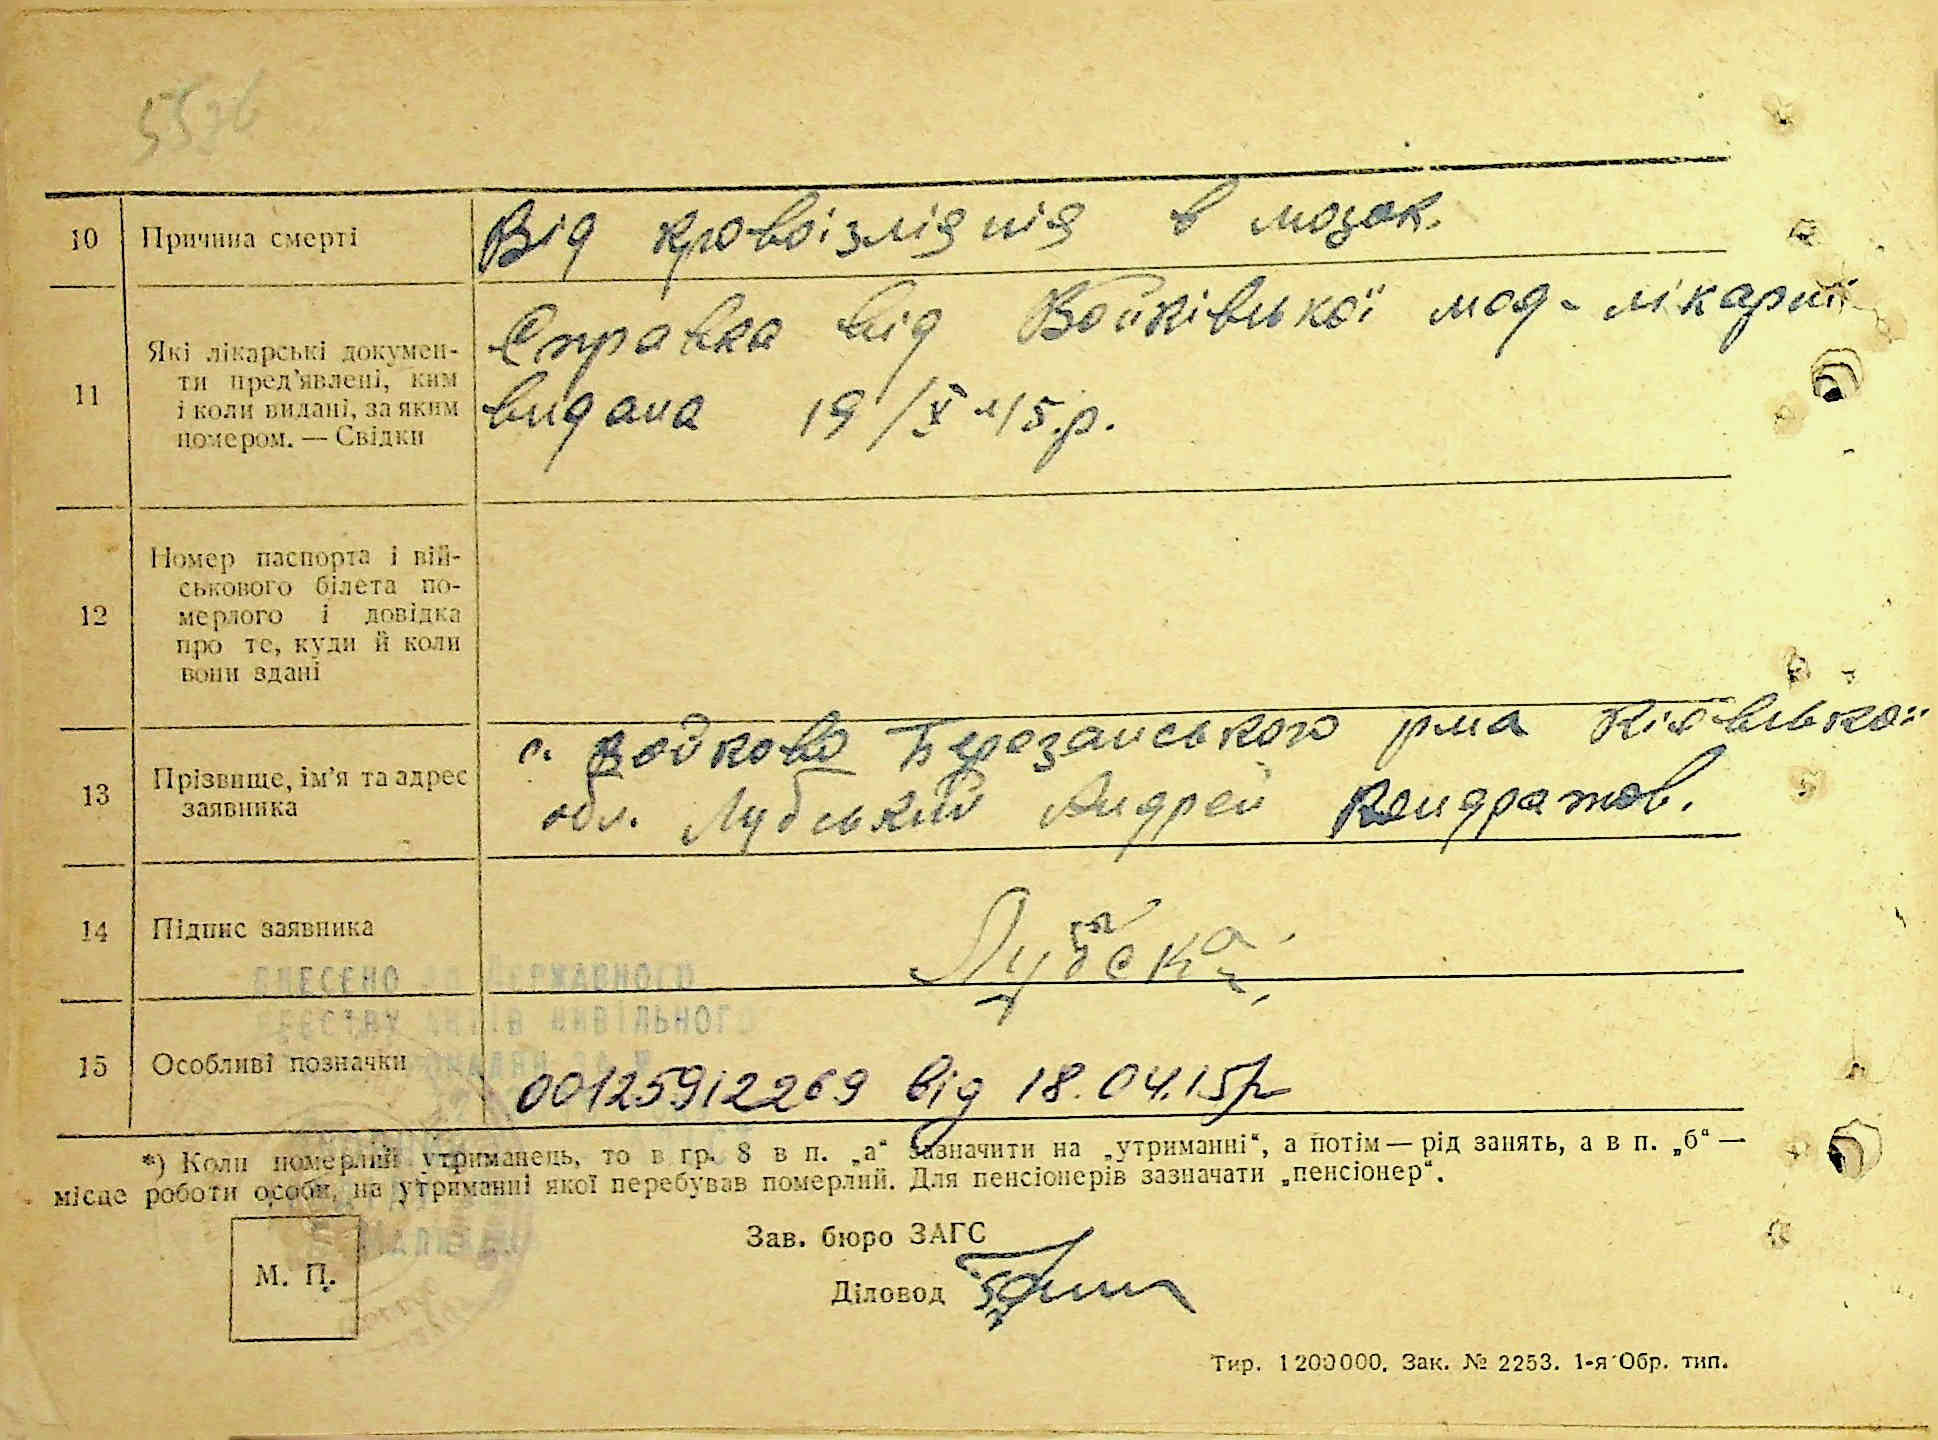 10 Причина смерті Від кровоізліянія в мозок.
11 Які лікарські документи пред'явлені, ким і коли видані, за яким номером. — Свідки
Справка від Войківської мед-лікарні
видана 19/X 45.р.
12 Номер паспорта і вій-
ськового білета по-
мерлого і довідка
про те, куди й коли
вони здані
13 Прізвище, ім'я та адрес
заявника
с. Войково Березанського р-на Київської
обл. Лубський Андрей Кондратов.
14 Підпис заявника
ВНЕСЕНО ДО ДЕРЖАВНОГО
РЕЄСТРУ АКТІВ ЦИВІЛЬНОГО
15 Особливі позначки
00125912269 від 18.04.15р
*) Коли померлий утриманець, то в гр. 8 в п. „а“ зазначити на „утриманні“, а потім — рід занять, а в п. „б“ —
місце роботи особи, на утриманні якої перебував померлий. Для пенсіонерів зазначати „пенсіонер“.
Зав. бюро ЗАГС
М. П.
Діловод
Тир. 1200000. Зак. № 2253. 1-я Обр. тип.